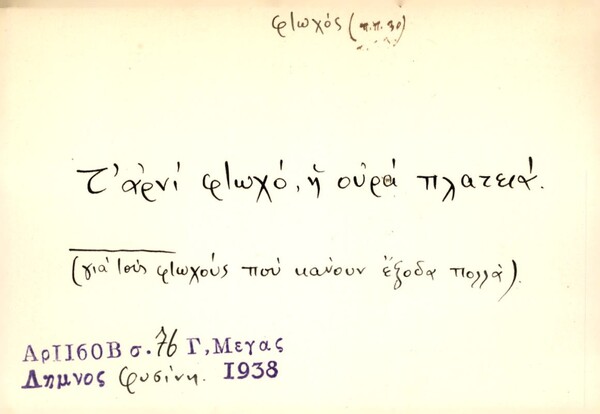 φτωχός (π.π. 30)
Τ' ἀρνὶ φτωχό, ἡ οὐρὰ πλατειά.
(γιὰ τοὺς φτωχοὺς ποὺ κάνουν ἔξοδα πολλά).
Αρ1160Β σ. 76 Γ, Μεγας
Λημνος Φυσίνη. 1938